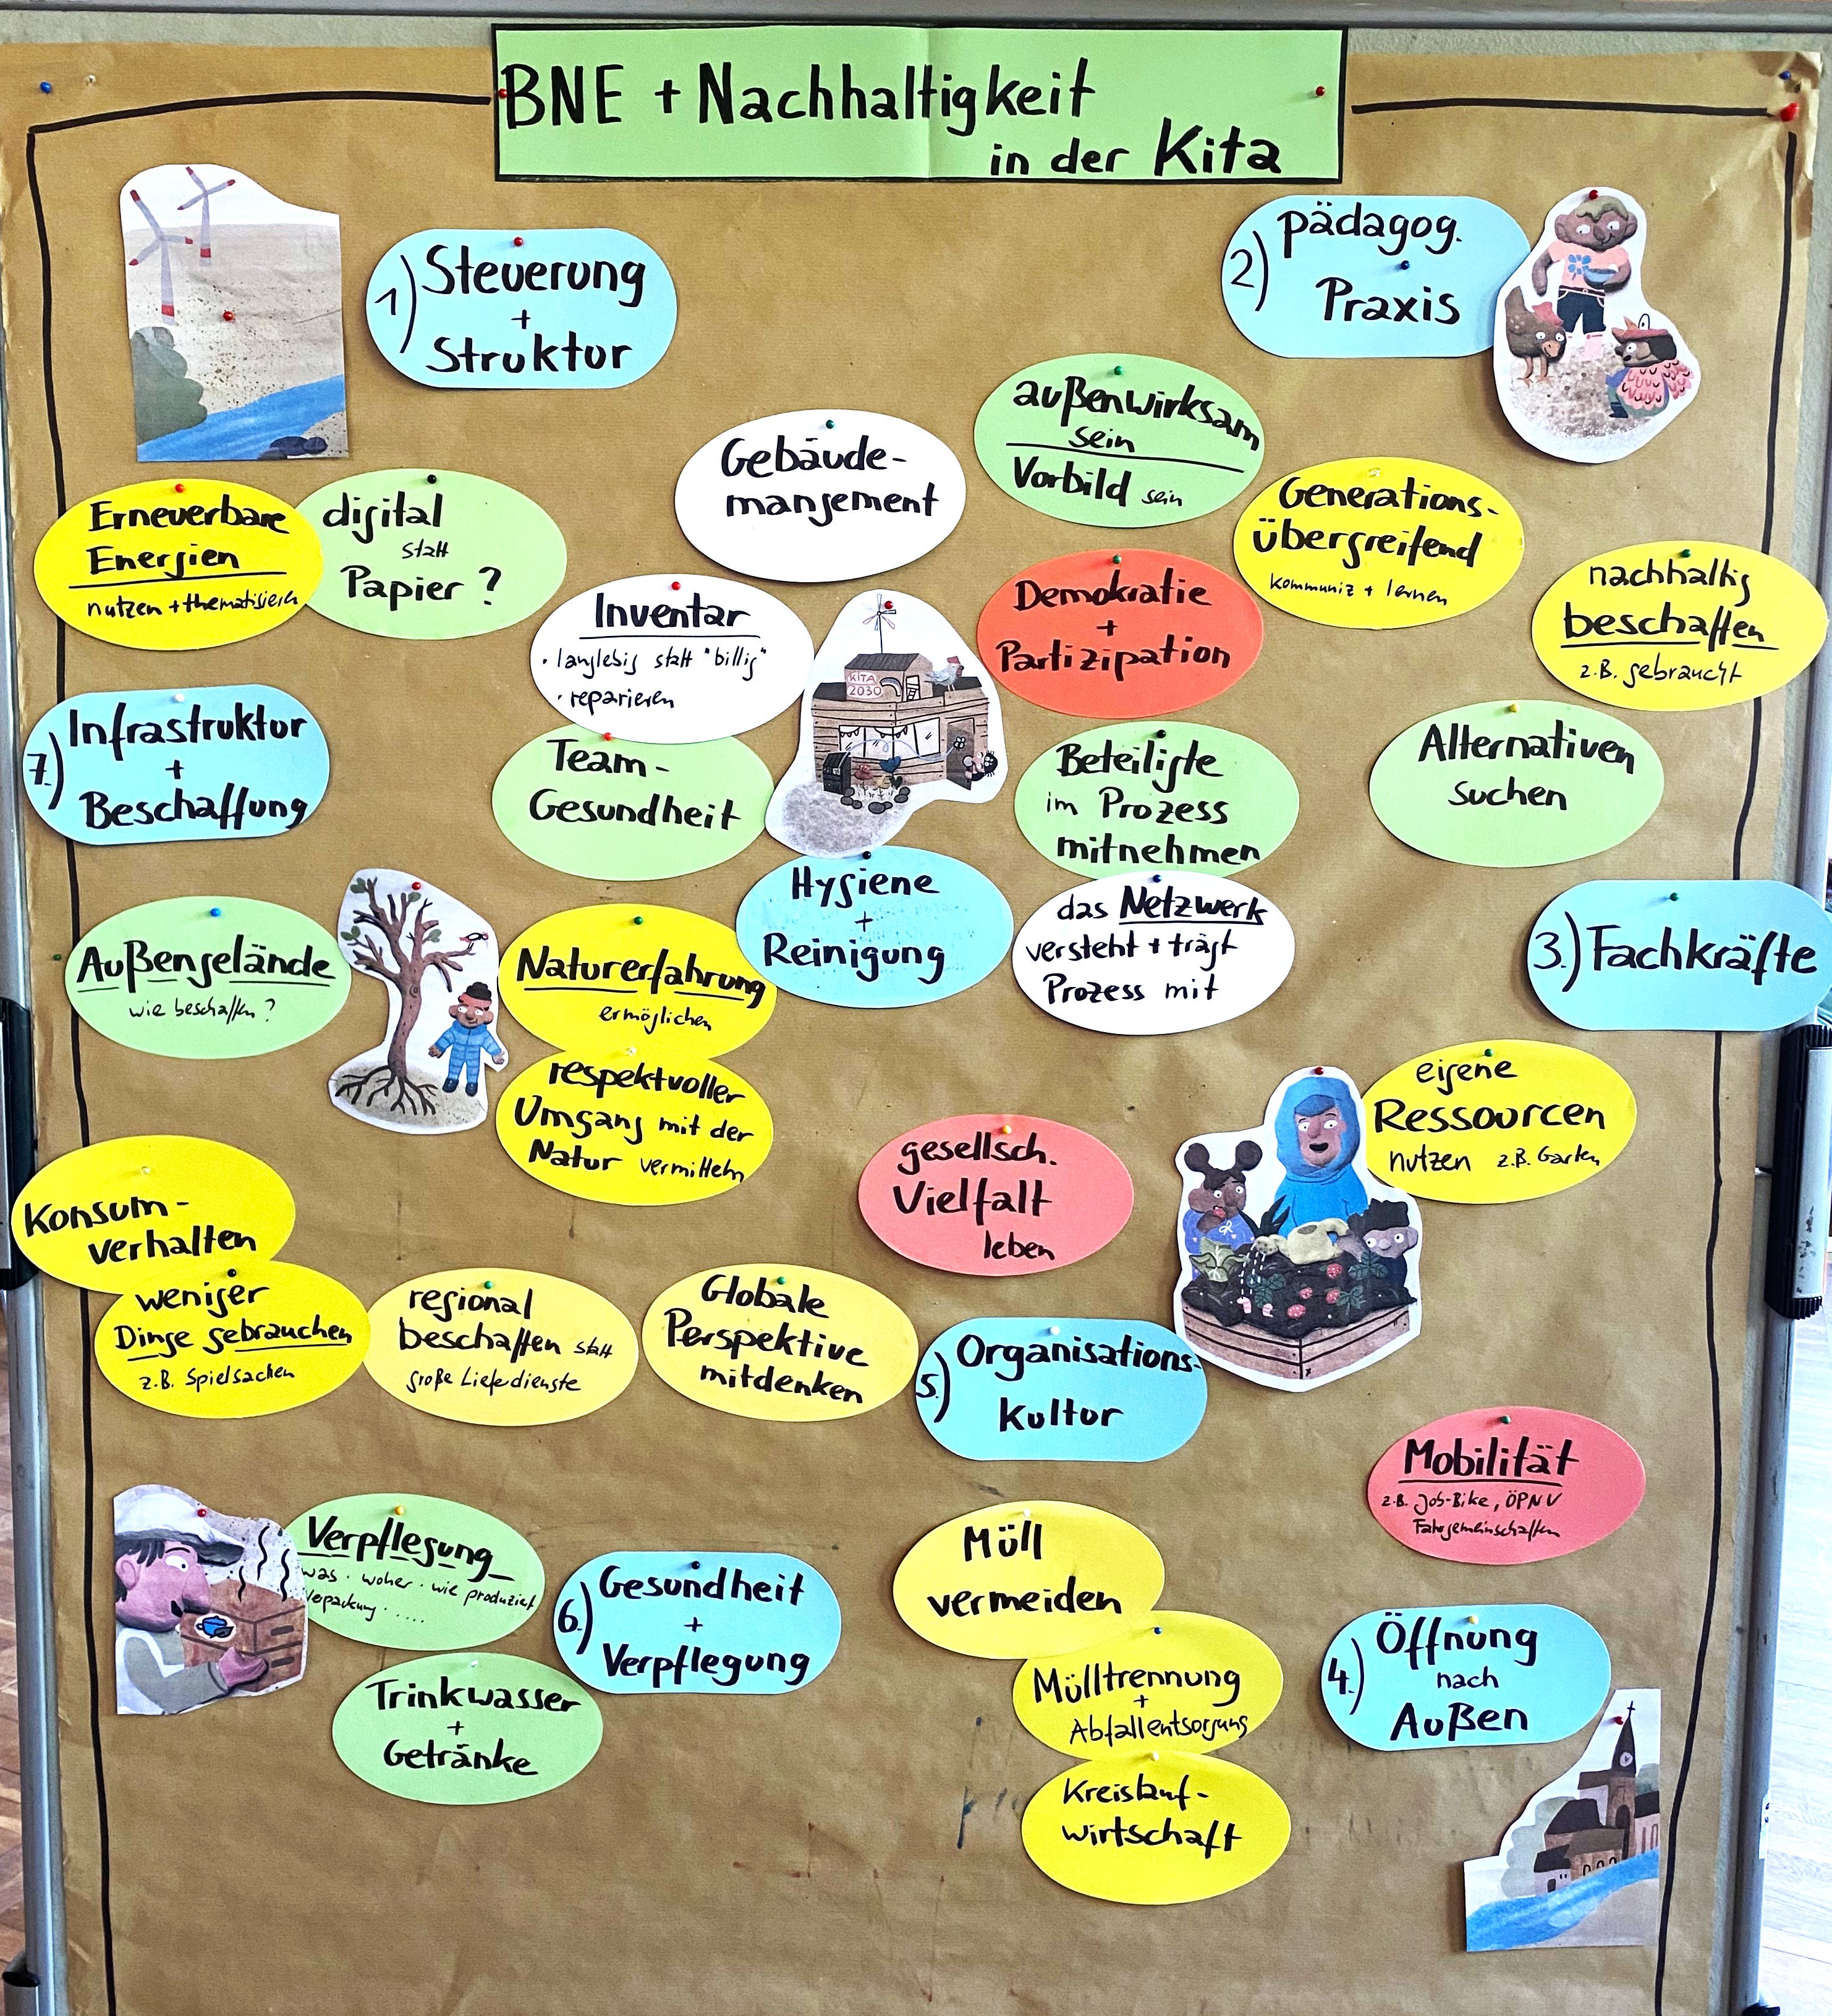 BNE + Nachhaltigkeit
in der Kita
1) Steuerung
+
Struktur
2) pädagog.
Praxis
außenwirksam
sein
Vorbild sein
Gebäude-
mangement
Generations-
übergreifend
kommuniz + lernen
Erneuerbare
Energien
nutzen + thematisieren
digital
statt
Papier ?
Inventar
· langlebig statt "billig"
· reparieren
KITA
2030
Demokratie
+
Partizipation
nachhaltig
beschaffen
z.B. gebraucht
7.) Infrastruktur
+
Beschaffung
Team-
Gesundheit
Beteiligte
im Prozess
mitnehmen
Alternativen
suchen
Hygiene
+
Reinigung
das Netzwerk
versteht + trägt
Prozess mit
3.) Fachkräfte
Außengelände
wie beschaffen ?
Naturerfahrung
ermöglichen
respektvoller
Umgang mit der
Natur vermitteln
eigene
Ressourcen
nutzen z.B. Garten
gesellsch.
Vielfalt
leben
Konsum-
verhalten
weniger
Dinge gebrauchen
z.B. Spielsachen
regional
beschaffen statt
große Lieferdienste
Globale
Perspektive
mitdenken
5.) Organisations-
kultur
Mobilität
z.B. Job-Bike, ÖPNV
Fahrgemeinschaften
Verpflegung
was · woher · wie produziert
Verpackung .....
6.) Gesundheit
+
Verpflegung
Müll
vermeiden
Mülltrennung
+
Abfallentsorgung
4.) Öffnung
nach
Außen
Trinkwasser
+
Getränke
Kreislauf-
wirtschaft